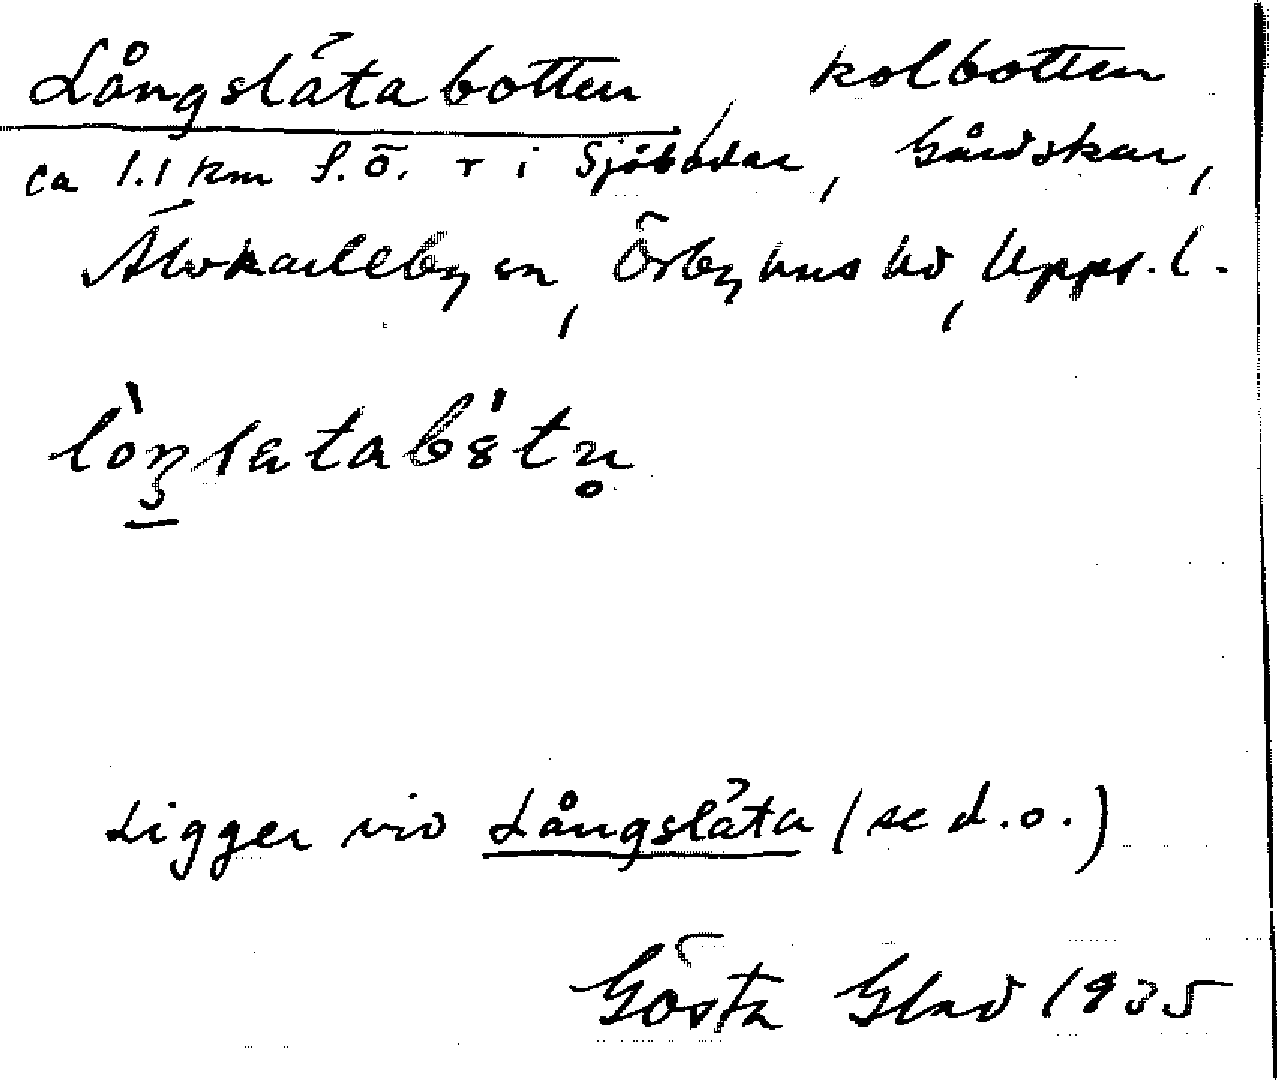 Långslätabotten, kolbotten
ca 1.1 km S.Ö. r i Sjöbodar, Gårdskär,
Älvkarleby sn, Örbyhus hd, Upps. l.
Ligger vid Långsläta (se d.o.)
Gösta Glad 1935